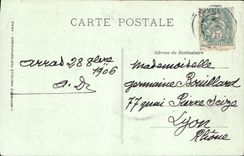 CARTE POSTALE
Adresse du Destinataire
Arras 28 8bre
1906
A. D.
Mademoiselle
Germaine Bouillard
77 quai Pierre Scize
Lyon
Rhône